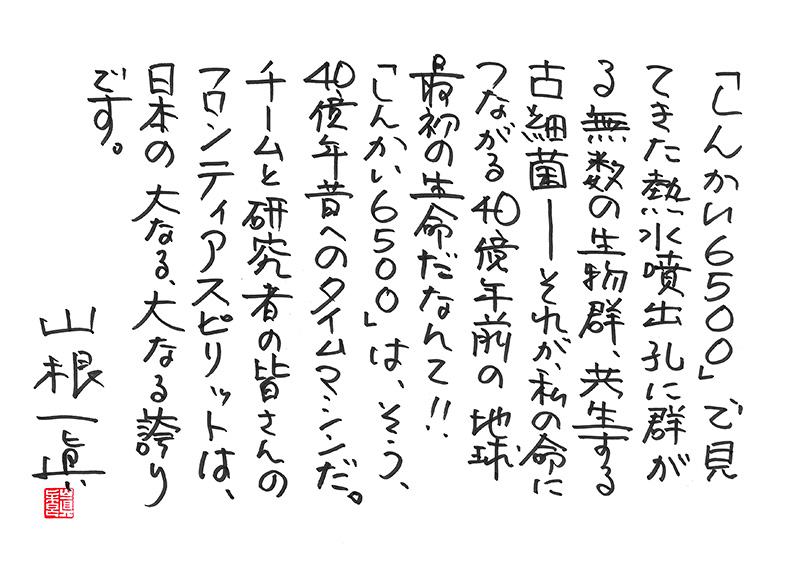 「しんかい6500」で見
てきた熱水噴出孔に群が
る無数の生物群、共生する
古細菌ーそれが、私の命に
つながる40億年前の地球
最初の生命だなんて!!
「しんかい6500」は、そう、
40億年昔へのタイムマシンだ。
チームと研究者の皆さんの
フロンティアスピリットは、
日本の大なる、大なる誇り
です。
山根一眞